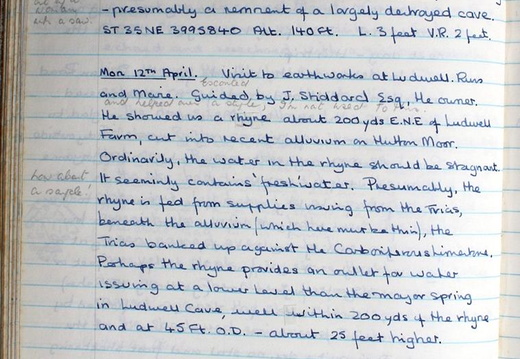 - presumably a remnent of a largely destroyed cave.
ST 35 NE 3995840 Alt. 140 Ft. L. 3 feet V.R. 2 feet.
Mon 12TH April. Visit to earthworks at Ludwell. Russ
Escorted
and Marie. Guided by J. Stiddard Esq, the owner.
and helped over a stile, I'm not used to
He showed us a rhyne about 200 yds E.N.E of Ludwell
Farm, cut into recent alluvium on Hutton Moor.
Ordinarily, the water in the rhyne should be stagnant.
how about
a sample!
It seeminly contains 'fresh' water. Presumably, the
rhyne is fed from supplies issuing from the Trias,
beneath the alluvium (which here must be thin), the
Trias banked up against the Carboniferous limestone.
Perhaps the rhyne provides an outlet for water
issuing at a lower level than the major spring
in Ludwell Cave, well within 200 yds of the rhyne
and at 45 Ft. O.D. - about 25 feet higher.